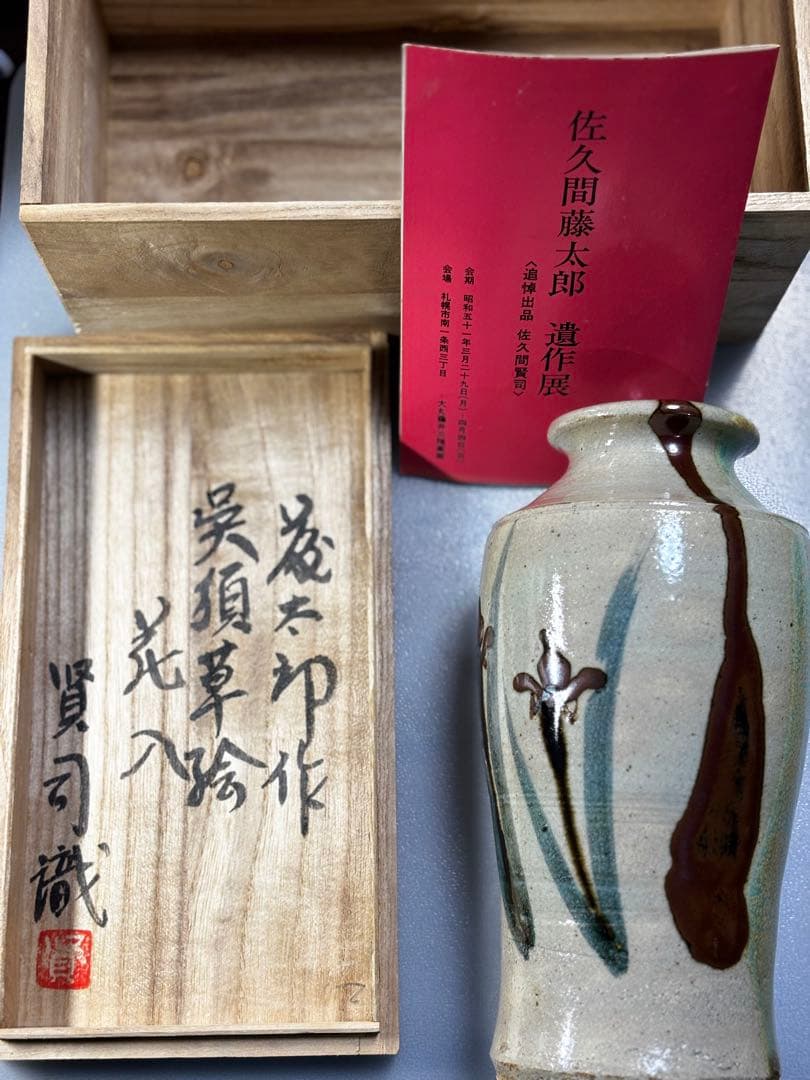 佐久間藤太郎 遺作展
〈追悼出品 佐久間賢司〉
会期 昭和五十一年三月二十九日(月)─四月四日(日)
会場 札幌市南一条西三丁目
藤太郎作
呉須草絵
花入
賢司識
賢